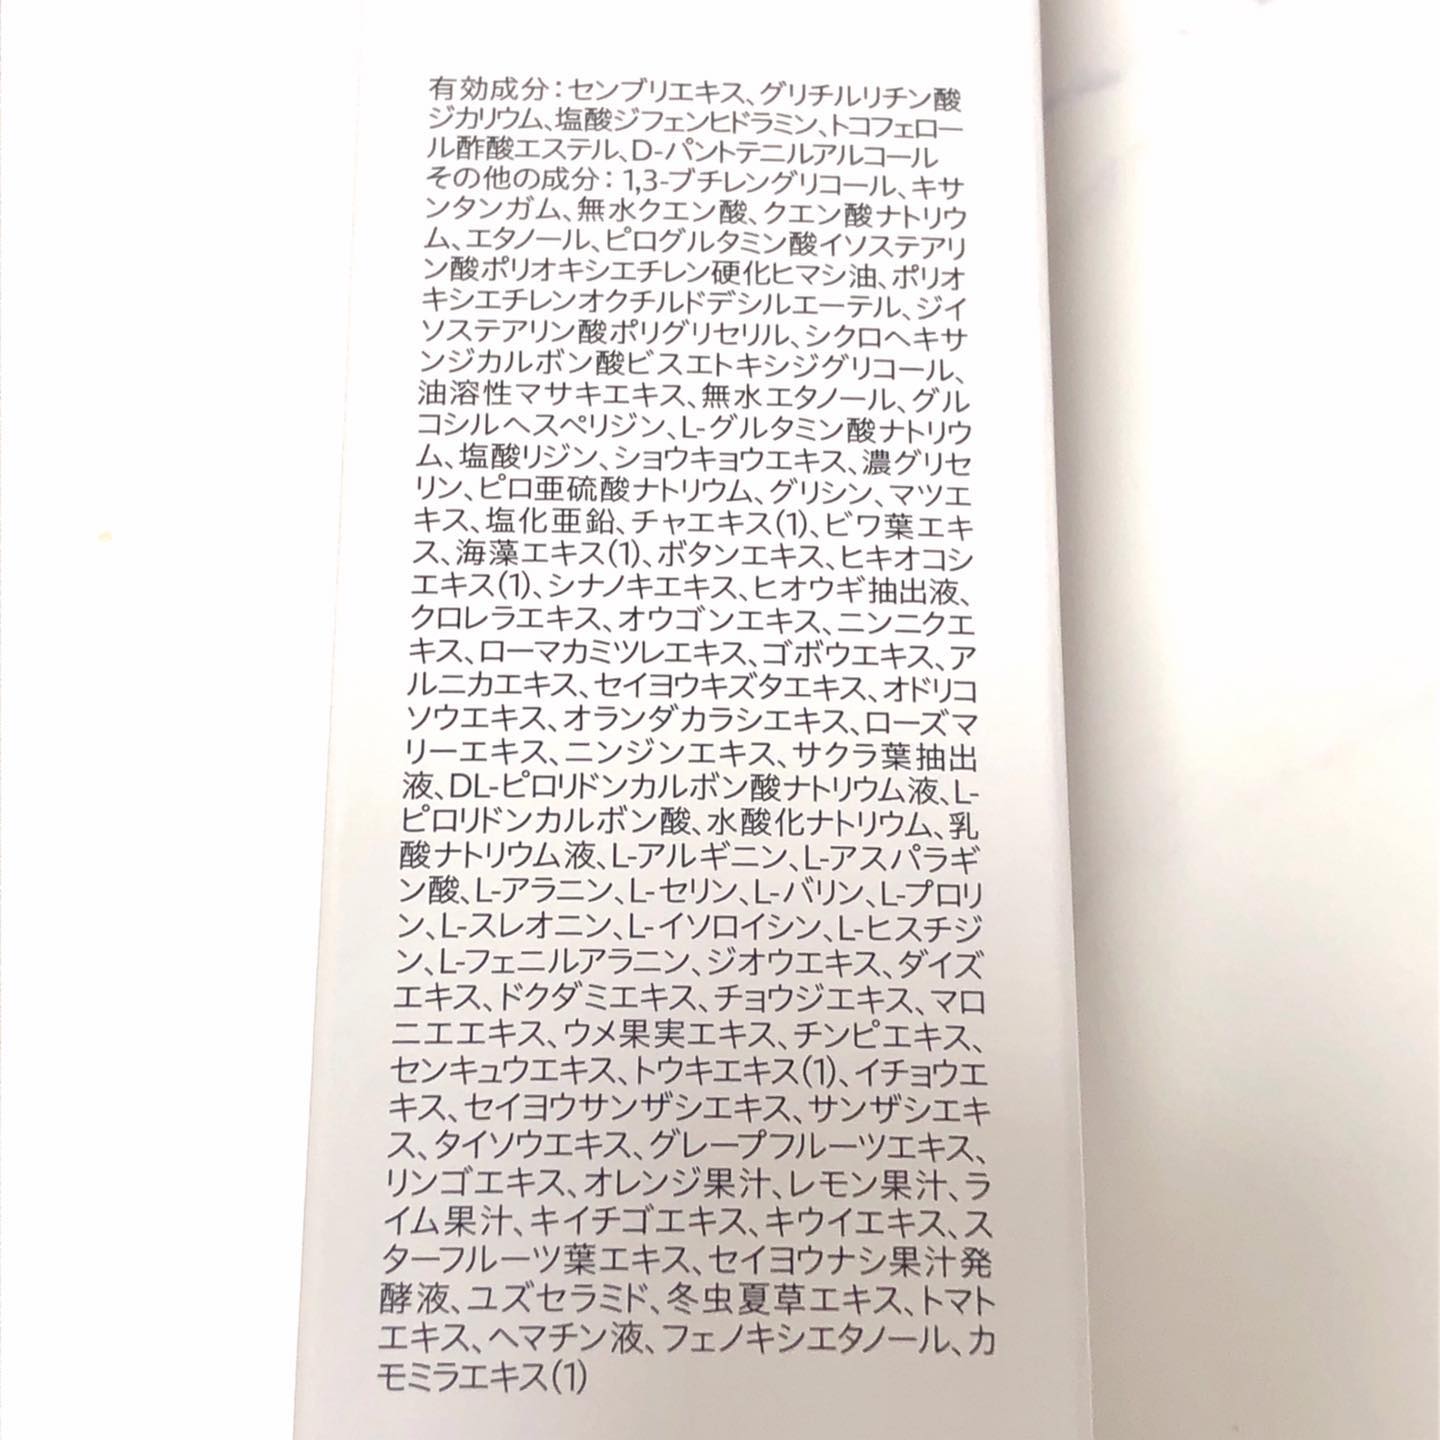 有効成分：センブリエキス、グリチルリチン酸
ジカリウム、塩酸ジフェンヒドラミン、トコフェロー
ル酢酸エステル、D-パントテニルアルコール
その他の成分：1,3-ブチレングリコール、キサ
ンタンガム、無水クエン酸、クエン酸ナトリウ
ム、エタノール、ピログルタミン酸イソステアリ
ン酸ポリオキシエチレン硬化ヒマシ油、ポリオ
キシエチレンオクチルドデシルエーテル、ジイ
ソステアリン酸ポリグリセリル、シクロヘキサ
ンジカルボン酸ビスエトキシジグリコール、
油溶性マサキエキス、無水エタノール、グル
コシルヘスペリジン、L-グルタミン酸ナトリウ
ム、塩酸リジン、ショウキョウエキス、濃グリセ
リン、ピロ亜硫酸ナトリウム、グリシン、マツエ
キス、塩化亜鉛、チャエキス(1)、ビワ葉エキ
ス、海藻エキス(1)、ボタンエキス、ヒキオコシ
エキス(1)、シナノキエキス、ヒオウギ抽出液、
クロレラエキス、オウゴンエキス、ニンニクエ
キス、ローマカミツレエキス、ゴボウエキス、ア
ルニカエキス、セイヨウキズタエキス、オドリコ
ソウエキス、オランダカラシエキス、ローズマ
リーエキス、ニンジンエキス、サクラ葉抽出
液、DL-ピロリドンカルボン酸ナトリウム液、L-
ピロリドンカルボン酸、水酸化ナトリウム、乳
酸ナトリウム液、L-アルギニン、L-アスパラギ
ン酸、L-アラニン、L-セリン、L-バリン、L-プロリ
ン、L-スレオニン、L-イソロイシン、L-ヒスチジ
ン、L-フェニルアラニン、ジオウエキス、ダイズ
エキス、ドクダミエキス、チョウジエキス、マロ
ニエエキス、ウメ果実エキス、チンピエキス、
センキュウエキス、トウキエキス(1)、イチョウエ
キス、セイヨウサンザシエキス、サンザシエキ
ス、タイソウエキス、グレープフルーツエキス、
リンゴエキス、オレンジ果汁、レモン果汁、ラ
イム果汁、キイチゴエキス、キウイエキス、ス
ターフルーツ葉エキス、セイヨウナシ果汁発
酵液、ユズセラミド、冬虫夏草エキス、トマト
エキス、ヘマチン液、フェノキシエタノール、カ
モミラエキス(1)